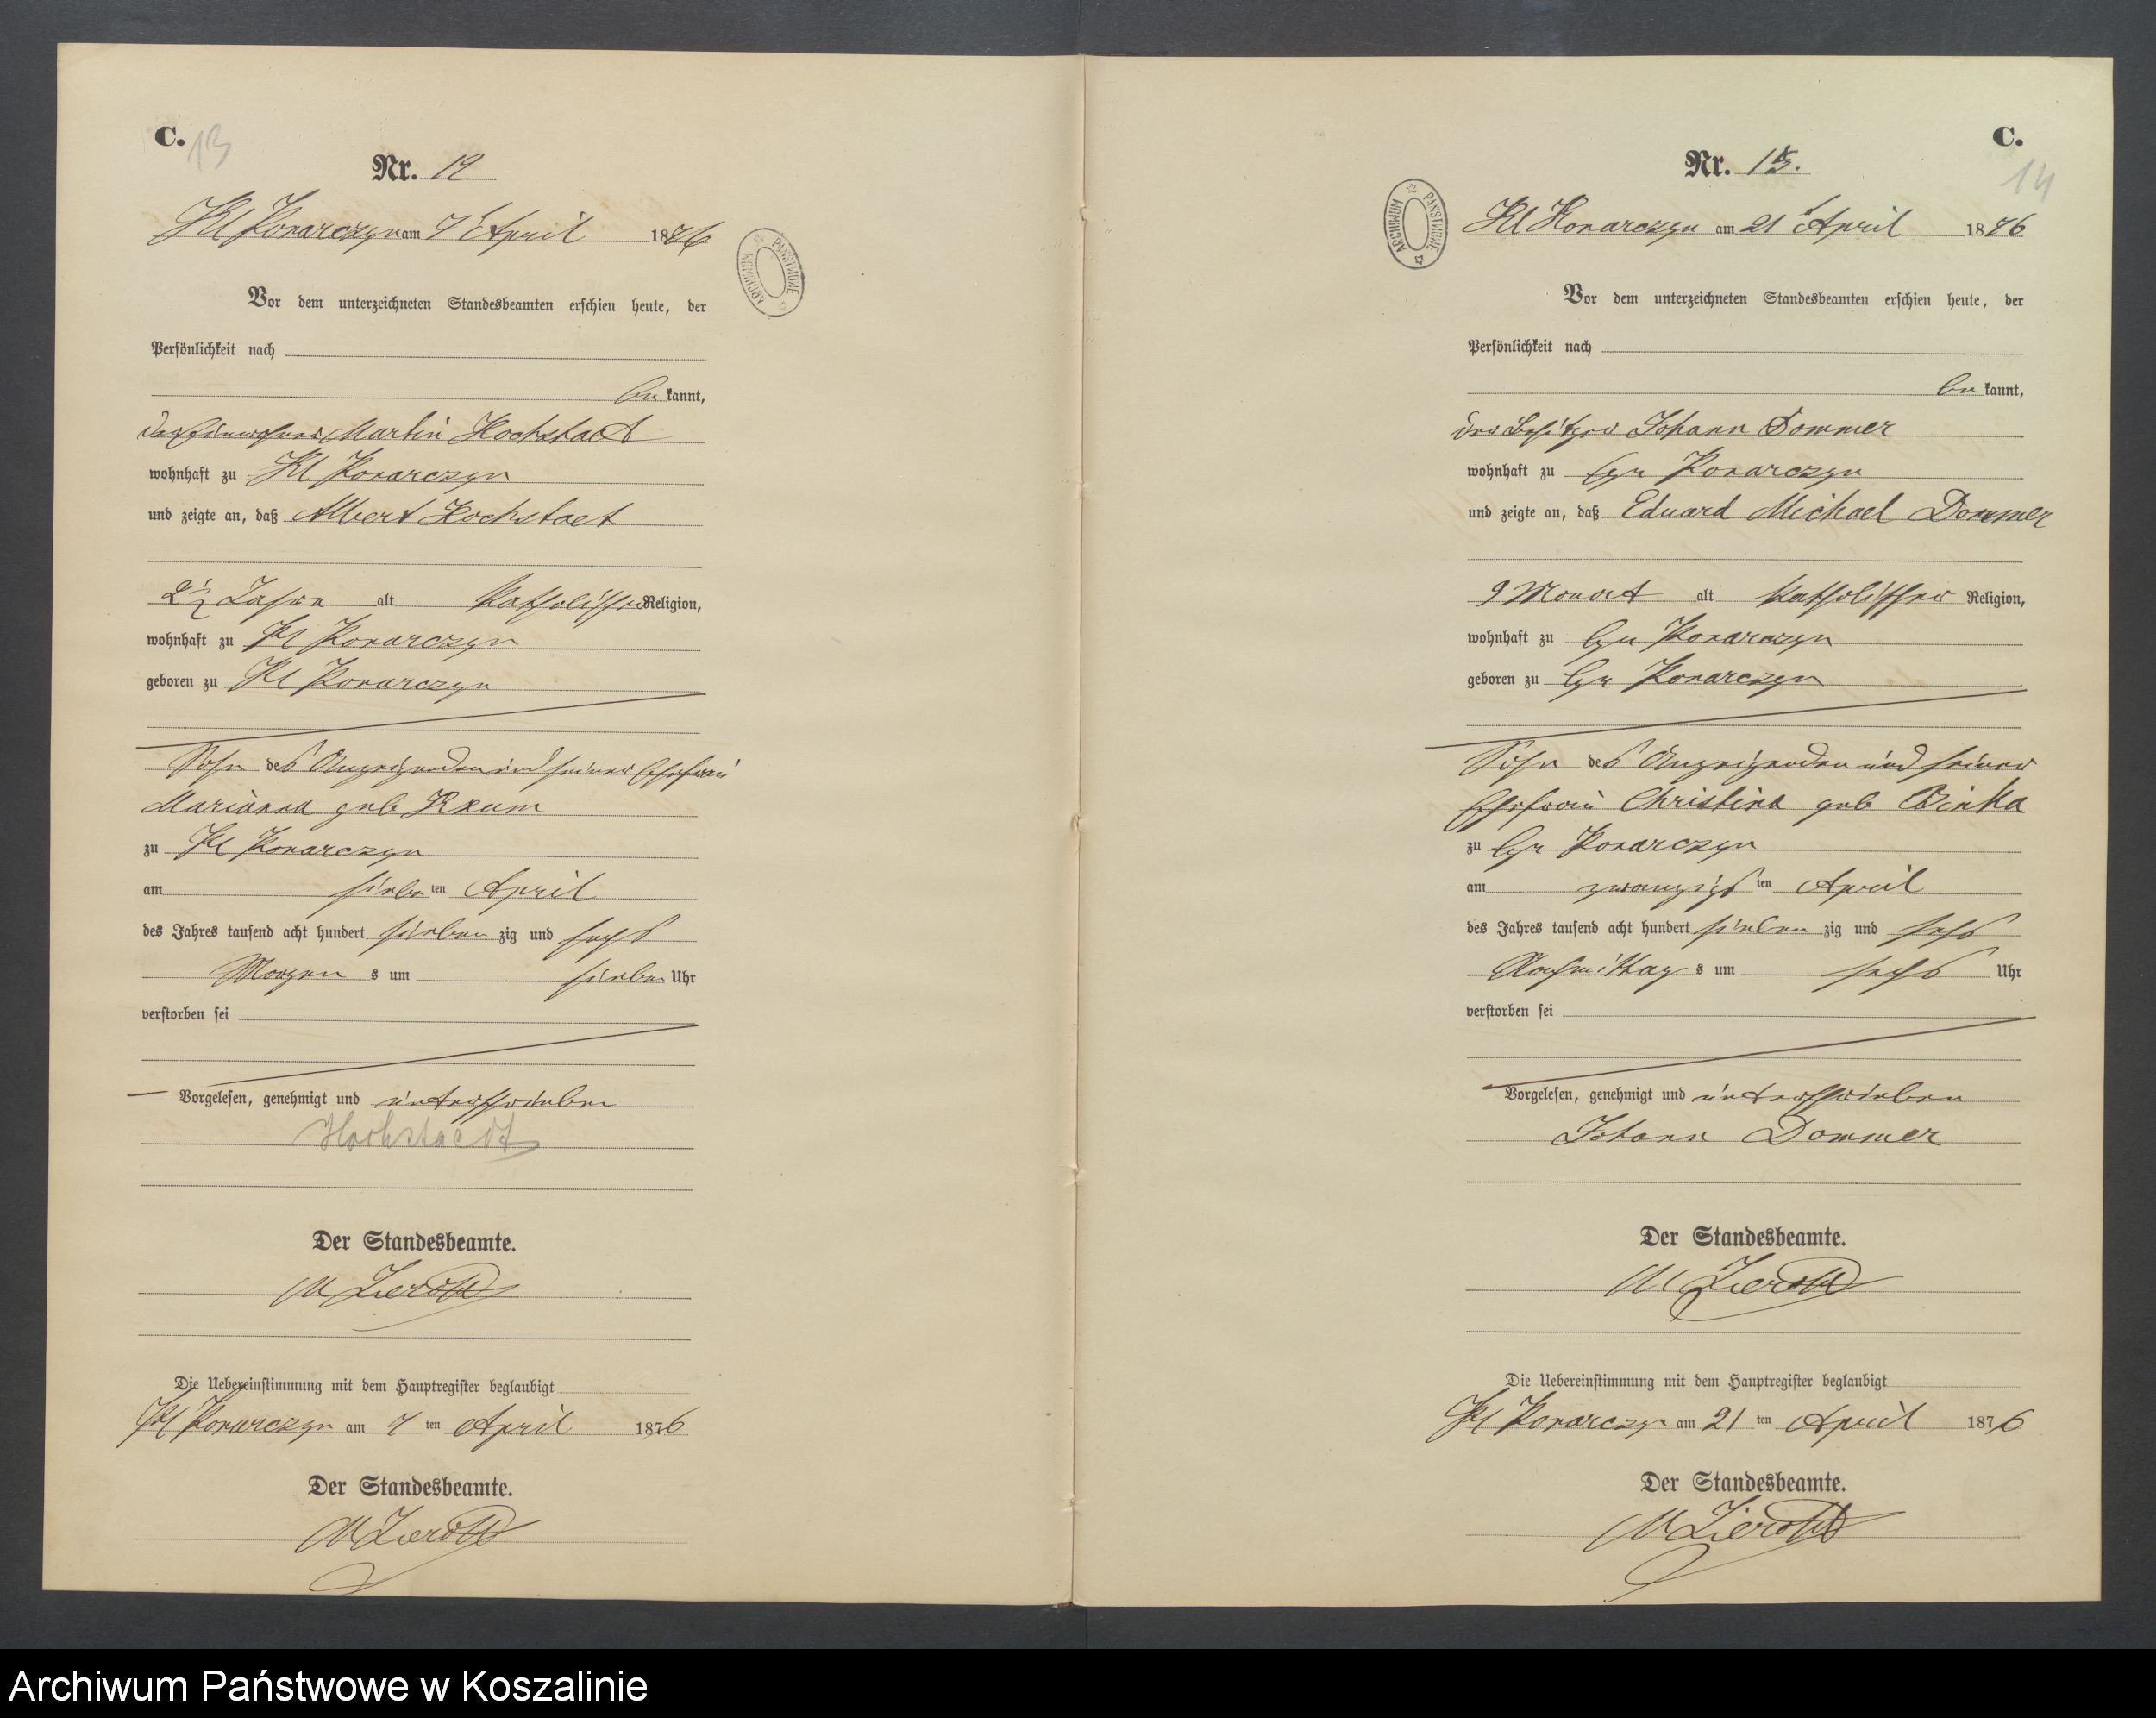 C.
13
Nr. 12
Kl Konarczyn am 7 t April 1876
ARCHIWUM PAŃSTWOWE
Vor dem unterzeichneten Standesbeamten erschien heute, der
Persönlichkeit nach
be kannt,
der Einwohner Martin Hochstaet
wohnhaft zu Kl Konarczyn
und zeigte an, daß Albert Hochstaet
2 1/2 Jahre alt katholischer Religion,
wohnhaft zu Kl Konarczyn
geboren zu Kl Konarczyn
Sohn des Anzeigenden und seiner Ehefrau
Marianna geb
zu Kl Konarczyn
am siebe ten April
des Jahres tausend acht hundert sieben zig und sechs
Morgen s um sieben Uhr
verstorben sei
Vorgelesen, genehmigt und unterschrieben
Hochstaedt
Der Standesbeamte.
M
Die Uebereinstimmung mit dem Hauptregister beglaubigt
Kl Konarczyn am 7 ten April 1876
Der Standesbeamte.
M
C.
14
Nr. 13.
Kl Konarczyn am 21 t April 1876
ARCHIWUM PAŃSTWOWE
Vor dem unterzeichneten Standesbeamten erschien heute, der
Persönlichkeit nach
be kannt,
der Besitzer Johann Dommer
wohnhaft zu Konarczyn
und zeigte an, daß Eduard Michael Dommer
9 Monat alt katholischer Religion,
wohnhaft zu Konarczyn
geboren zu Konarczyn
Sohn des Anzeigenden und seiner
Ehefrau Christina geb
zu Konarczyn
am zwanzigs ten April
des Jahres tausend acht hundert sieben zig und sechs
Nachmittag s um sechs Uhr
verstorben sei
Vorgelesen, genehmigt und unterschrieben
Johann Dommer
Der Standesbeamte.
M
Die Uebereinstimmung mit dem Hauptregister beglaubigt
Kl Konarczyn am 21 ten April 1876
Der Standesbeamte.
M
Archiwum Państwowe w Koszalinie